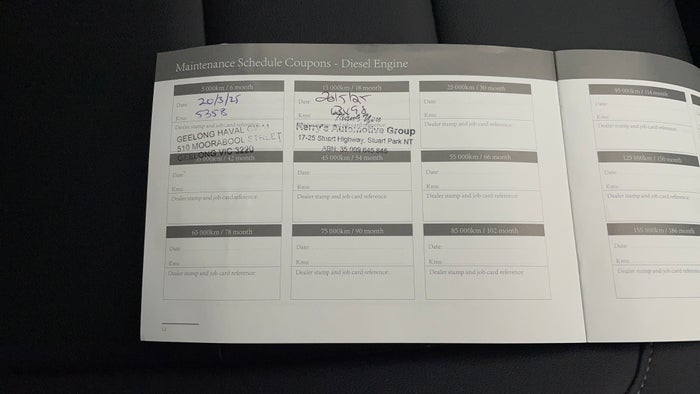 Maintenance Schedule Coupons - Diesel Engine
5 000km / 6 month
Date: 20/3/25
Kms: 5358
Dealer stamp and job card reference:
GEELONG HAVAL
510 MOORABOOL STREET
GEELONG VIC 3220
15 000km / 18 month
Date: 20/5/25
Kms:
Kerry's Automotive Group
17-25 Stuart Highway, Stuart Park NT
ABN: 35 009 645 846
25 000km / 30 month
Date:
Kms:
Dealer stamp and job card reference:
95 000km / 114 month
Date:
Kms:
Dealer stamp and job card reference
/ 42 month
Date:
Kms:
Dealer stamp and job card reference:
45 000km / 54 month
Date:
Kms:
Dealer stamp and job card reference:
55 000km / 66 month
Date:
Kms:
Dealer stamp and job card reference:
125 000km / 150 month
Date:
Kms:
Dealer stamp and job card reference
65 000km / 78 month
Date:
Kms:
Dealer stamp and job card reference:
75 000km / 90 month
Date:
Kms:
Dealer stamp and job card reference:
85 000km / 102 month
Date:
Kms:
Dealer stamp and job card reference:
155 000km / 186 month
Date:
Kms:
Dealer stamp and job card reference
12